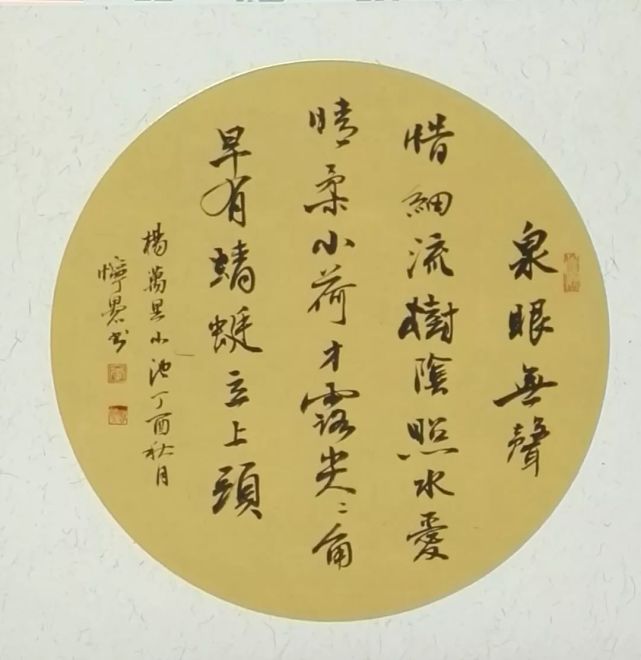 泉眼無聲
惜細流樹陰照水愛
晴柔小荷才露尖〻角
早有蜻蜓立上頭
楊萬里小池丁酉秋月
書